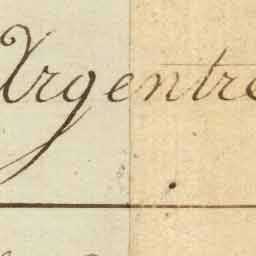 Argentré